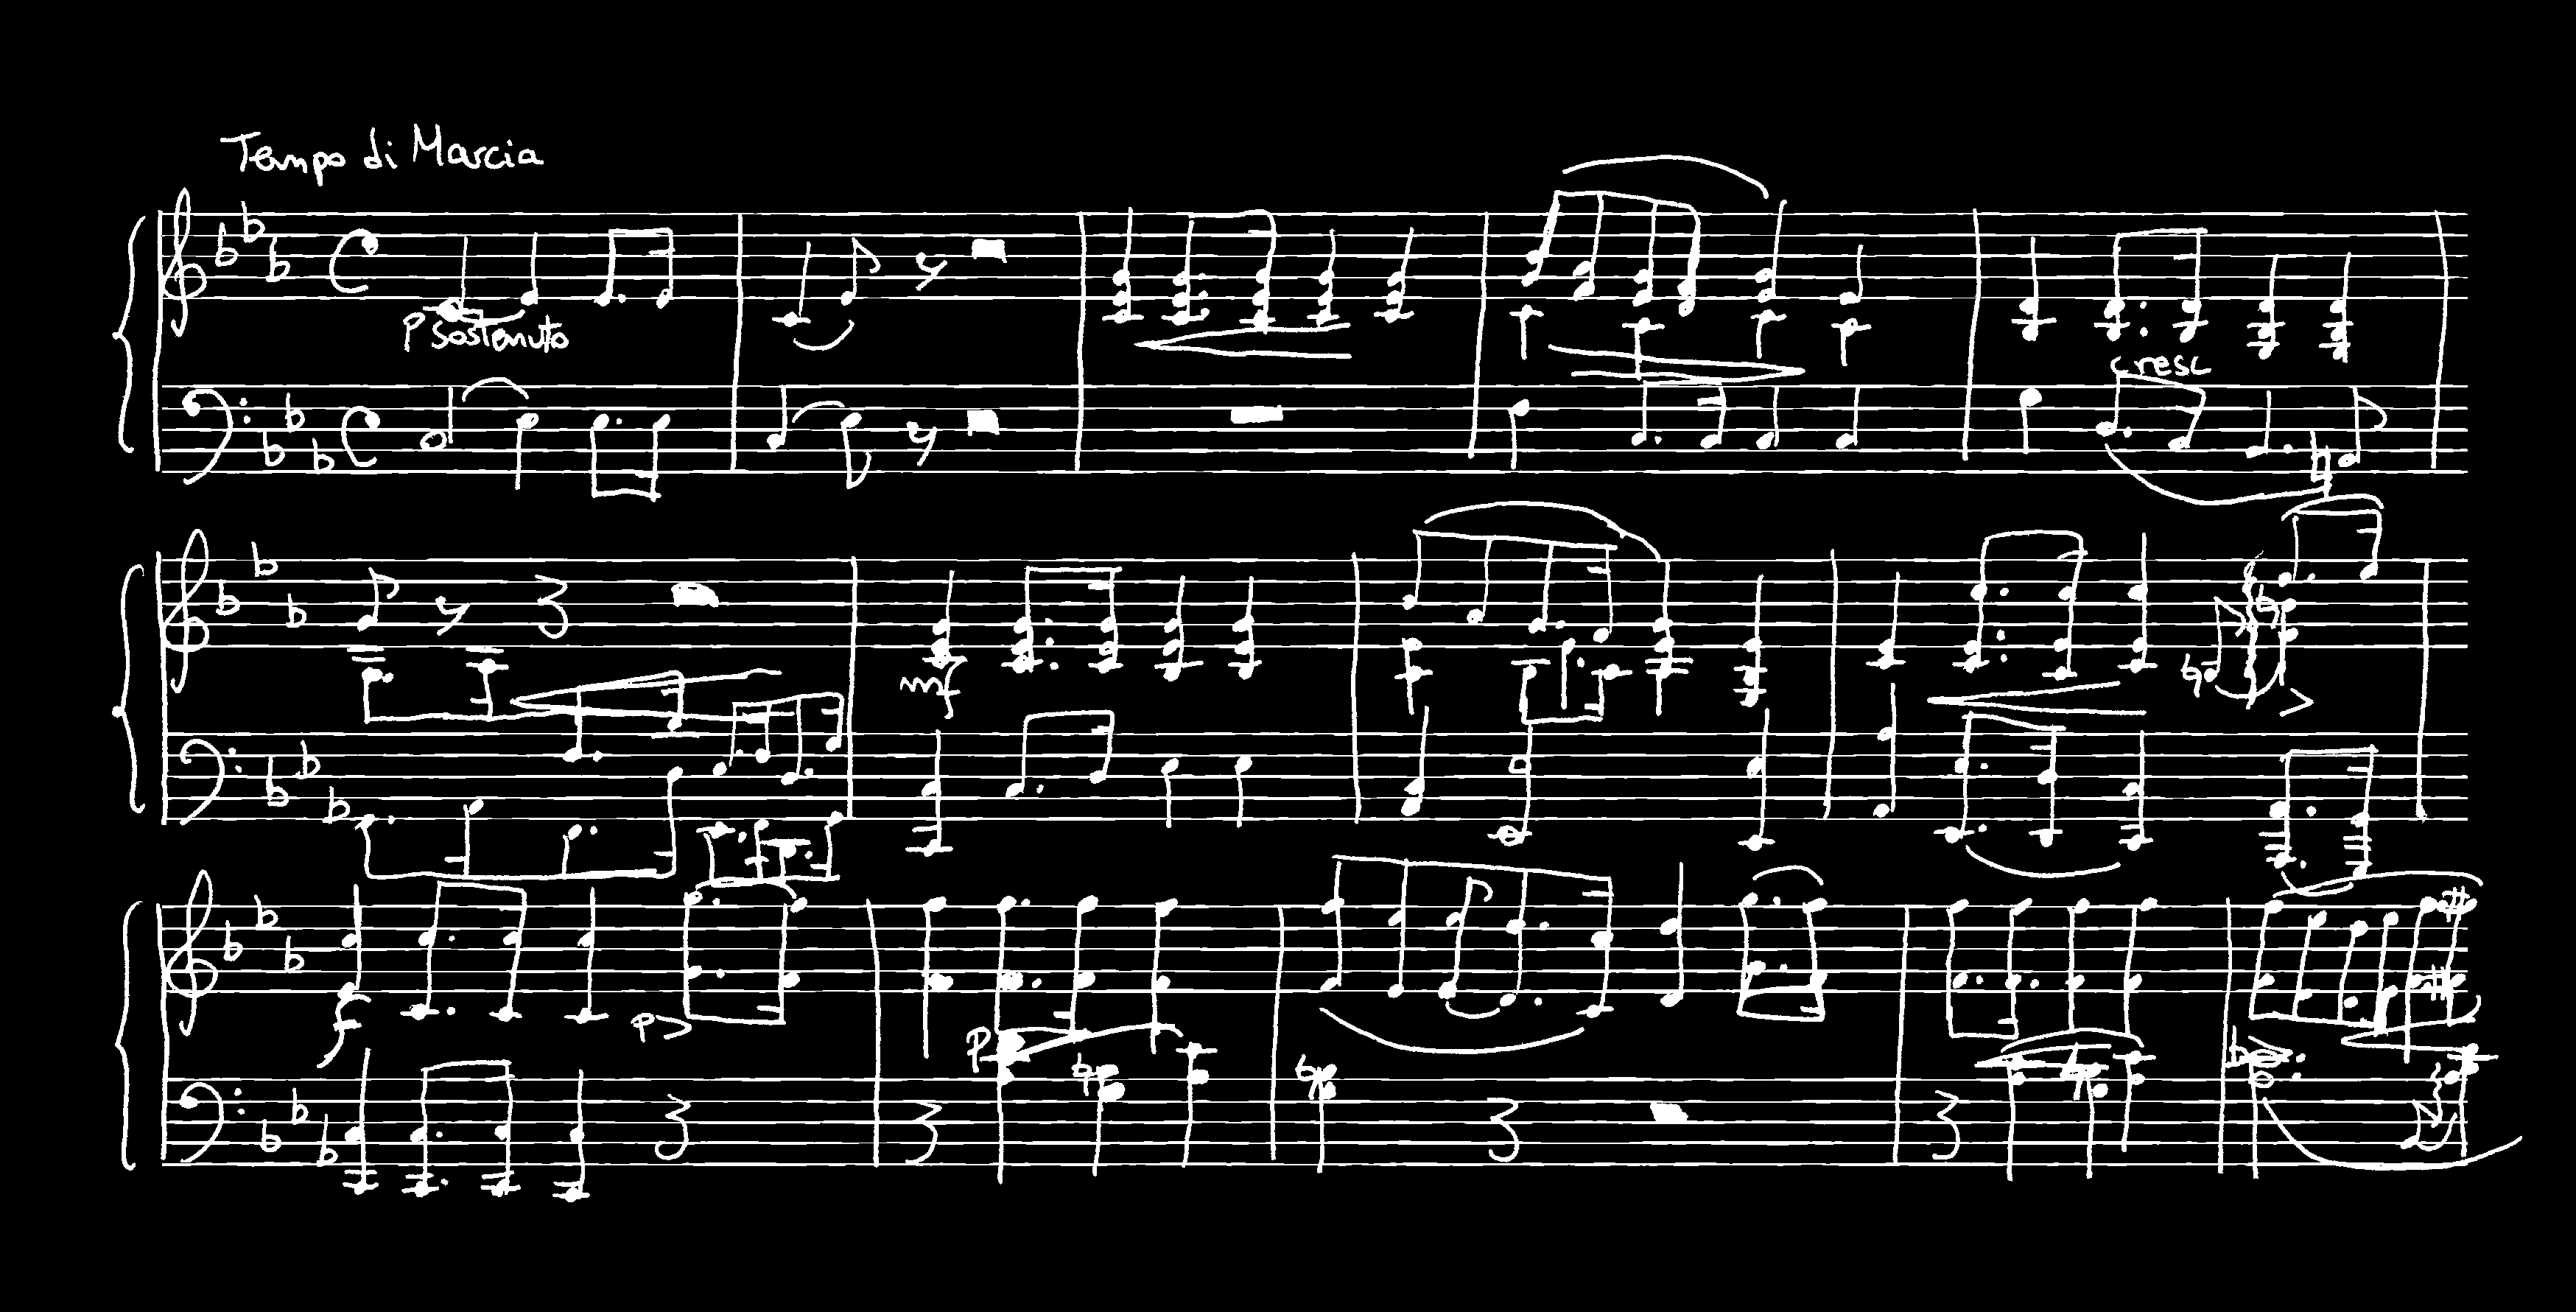 Tempo di Marcia
P sostenuto
cresc
mf
f
p
p